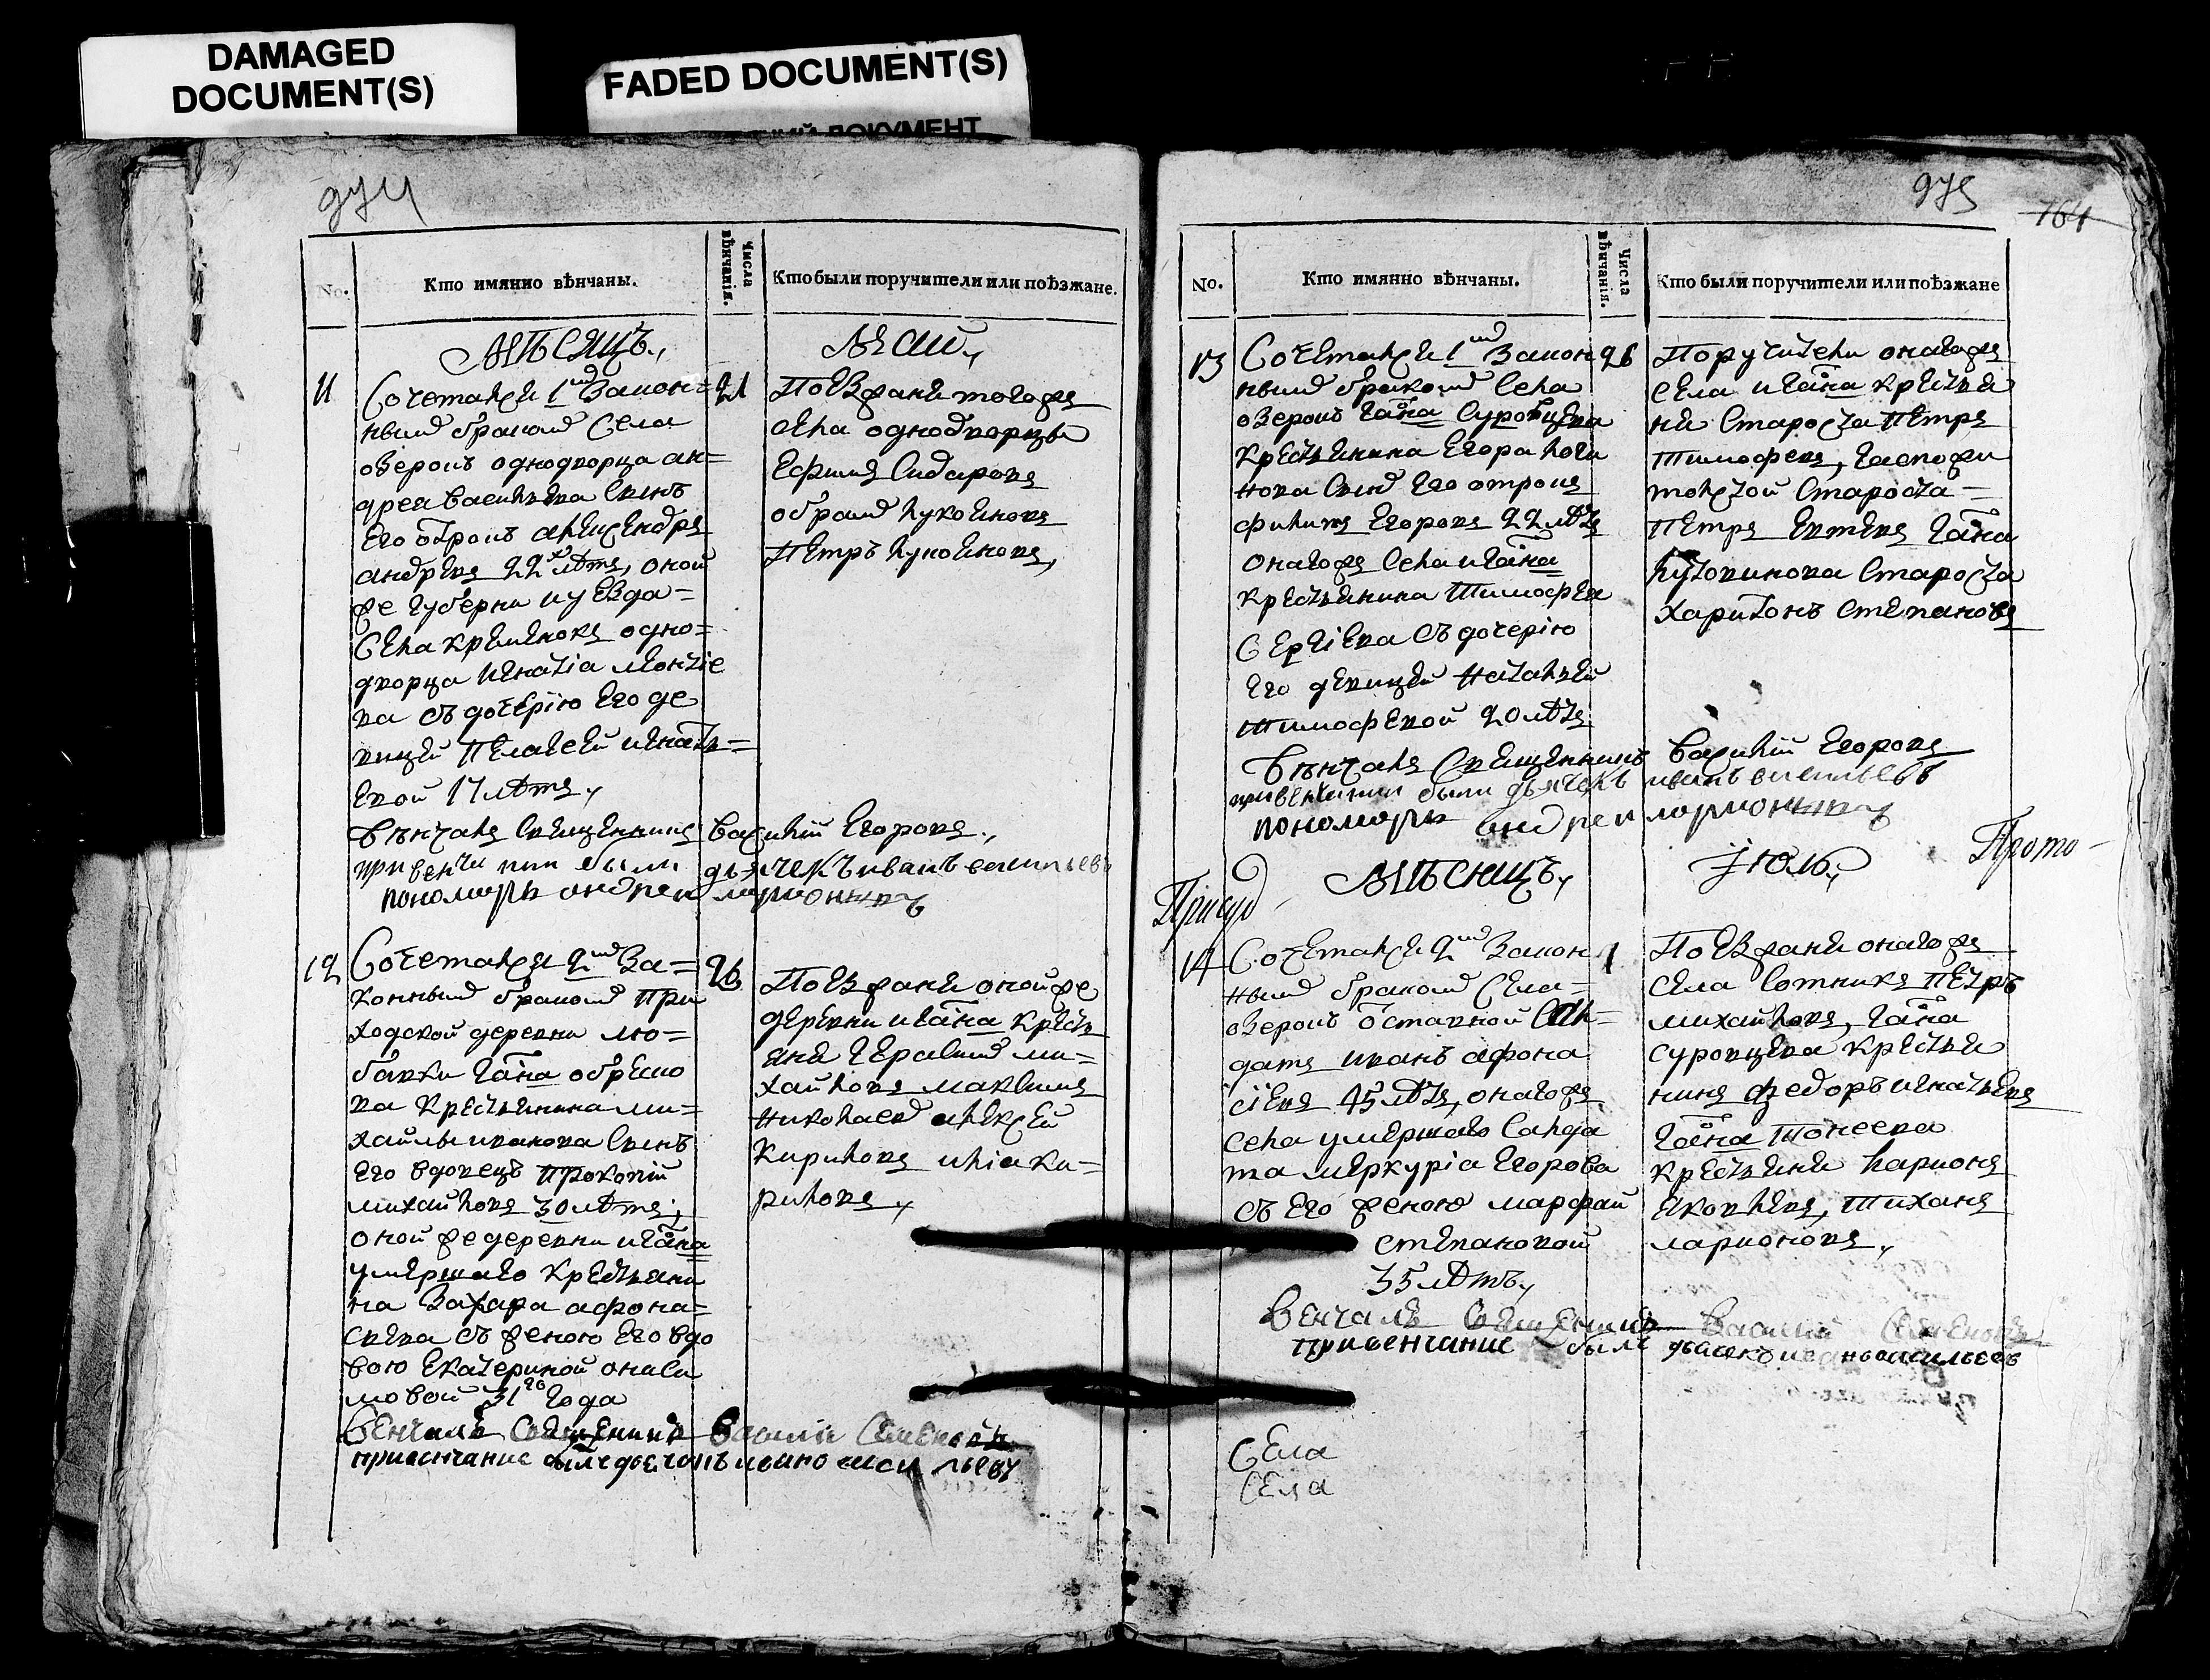 DAMAGED
DOCUMENT(S)
FADED DOCUMENT(S)
ДОКУМЕНТ
974
No.
Кто имянно вѣнчаны.
Числа вѣнчанія.
Кто были поручители или поѣзжане.
Мѣсяцъ
Маи
11
Сочетался 1мъ Закон=
21
нымъ бракомъ Села
озерокъ однодворца ан=
дрея Васильева Сынъ
Его отрокъ александръ
андреевъ 22х лѣтъ, оной
же губерни и уезда=
Села кременокъ одно=
дворца игнатіа
ва съ дочерію Его де
вицей Пелагеей игнать=
евой 17 лѣтъ
Поезжаня тогожъ
села однодворцы
Ефимъ Сидаровъ
абрамъ лукояновъ
Петръ лукояновъ,
Вѣнчалъ Священникъ Василій Егоровъ
привенчании были дьячекъ иванъ васильевъ
пономарь андреи ларионовъ
12
Сочетался 2мъ За=
26
коннымъ бракомъ При
ходской деревни лю=
бавки Гдна обрезко
ва крестьянина ми=
хайлы иванова Сынъ
Его вдовецъ Прокопій
михайловъ 30 лѣтъ,
оной же деревни и гдна
умершаго крестьяни
на Захара афона=
сьева съ женою Его вдо
вою Екатериной
мовой 31го года
Поезжаня оной же
деревни и гдна кресть
яня Герасимъ ми=
хайловъ максимъ
николаевъ алексей
Кириловъ илiа ки=
риловъ
Венчалъ Священикъ Василій Семеновъ
привенчание былъ дьячокъ иванъ васильевъ
975
164
No.
Кто имянно вѣнчаны.
Числа вѣнчанія.
Кто были поручители или поѣзжане
13
Сочетался 1мъ Закон
26
нымъ бракомъ Села
озерокъ Гдна Суровцева
крестьянина Егора логи
нова Сынъ Его отрокъ
филипъ Егоровъ 22 лѣтъ
онагожъ Села и гдна
крестьянина Тимофея
Сергіева съ дочерію
Его девицей Натальей
Тимофевой 20 лѣтъ
Поручители онагожъ
села и гдна крестья
ня Староста Петръ
Тимофевъ,
Староста=
Петръ Гдна
Староста
харитонъ Степановъ
Вѣнчалъ Священникъ Василій Егоровъ
привенчании были дьячекъ иванъ васильевъ
пономарь андреи ларионовъ
Прото-
Присуд-
Мѣсяцъ
Іюль
14
Сочетался 2мъ Закон
1
нымъ бракомъ Села=
озерокъ отставной Сал=
датъ иванъ афона
сіевъ 45 лѣтъ, онагожъ
села умершаго Салда
та меркуріа Егорова
съ Его женою марфай
степановой
35 лѣтъ
Поезжаня онагожъ
села Сотникъ Петръ
михайловъ, Гдна
суровцева крестья
нинъ федоръ игнатьевъ
Гдна
крестьяня ларионъ
яковлевъ, Тиханъ
ларионовъ
Венчалъ Священикъ Василій Семеновъ
привенчание былъ дьячекъ иванъ васильевъ
Села
Села